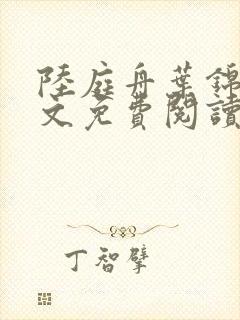 陸庭舟葉錦
文免費閱讀
丁智擘